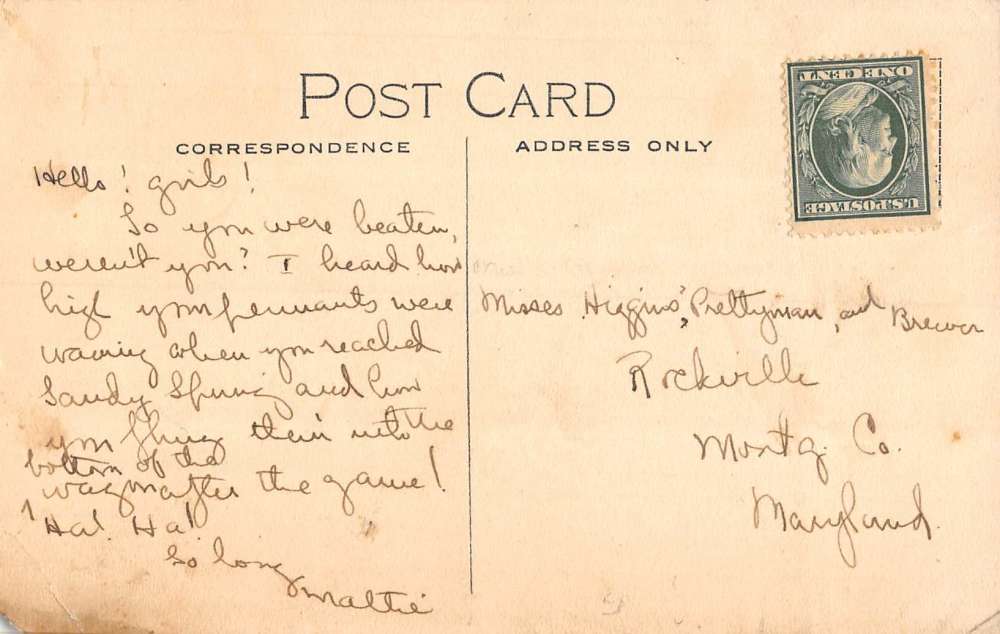 POST CARD
CORRESPONDENCE
ADDRESS ONLY
ONE CENT
U.S. POSTAGE
Hello! girls!
So you were beaten,
weren't you? I heard how
high your pennants were
waving when you reached
Sandy Spring and how
you flung them into the
bottom of the
wagon after the game!
Ha! Ha!
So long
Mattie
Misses Higgins, Prettyman, and Brewer
Rockville
Montg. Co.
Maryland.